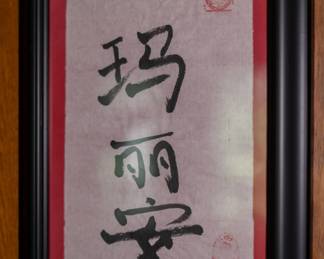 玛
丽
安